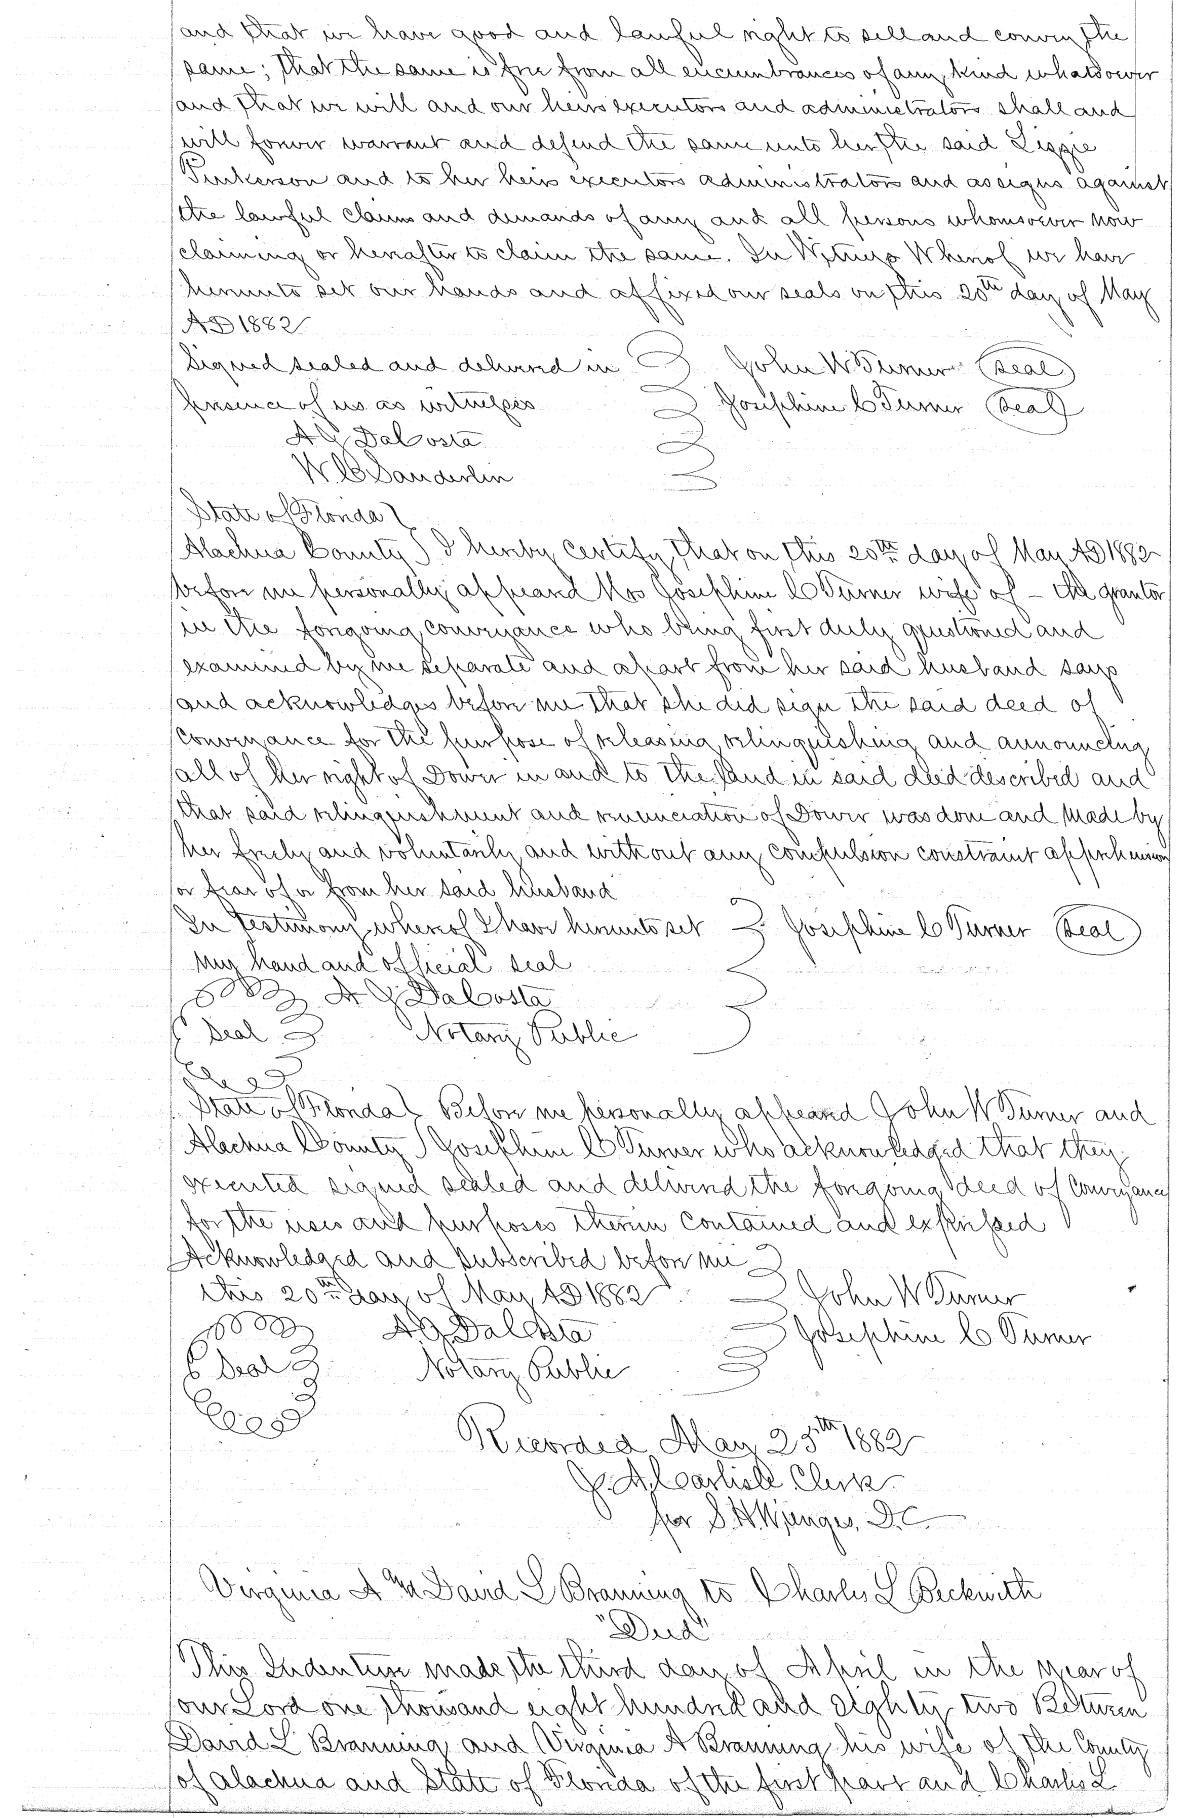 and that we have good and lawful right to sell and convey the
same; that the same is free from all encumbrances of any kind whatsoever
and that we will and our heirs executors and administrators shall and
will forever warrant and defend the same unto her the said Lizzie
Pinkerson and to her heirs executors administrators and assigns against
the lawful claims and demands of any and all persons whomsoever now
claiming or hereafter to claim the same. In Witness Whereof we have
hereunto set our hands and affixed our seals on this 20th day of May
AD 1882
Signed sealed and delivered in John W Turner Seal
presence of us as witnesses Josephine C Turner Seal
A J DaCosta
W C Sanderlin
State of Florida
Alachua County I hereby certify that on this 20th day of May AD 1882
before me personally appeared Mrs Josephine C Turner wife of – the grantor
in the foregoing conveyance who being first duly questioned and
examined by me separate and apart from her said husband says
and acknowledges before me that she did sign the said deed of
Conveyance for the purpose of releasing relinquishing and announcing
all of her right of Dower in and to the land in said deed described and
that said relinquishment and renunciation of Dower was done and made by
her freely and voluntarily and without any compulsion constraint apprehension
or fear of or from her said husband
In testimony whereof I have hereunto set Josephine C Turner Seal
my hand and official seal
A J DaCosta
Seal Notary Public
State of Florida Before me personally appeared John W Turner and
Alachua County Josephine C Turner who acknowledged that they
executed signed sealed and delivered the foregoing deed of Conveyance
for the uses and purposes therein contained and expressed
Acknowledged and subscribed before me
this 20th day of May AD 1882 John W Turner
A. J. DaCosta Josephine C Turner
Seal Notary Public
Recorded May 25th 1882
J. A. Carlisle Clerk
for S. H. Wienges, D.C.
Virginia A and David L Branning to Charles L Beckwith
"Deed"
This Indenture made the third day of April in the year of
our Lord one thousand eight hundred and eighty two Between
David L Branning and Virginia A Branning his wife of the County
of Alachua and State of Florida of the first part and Charles L